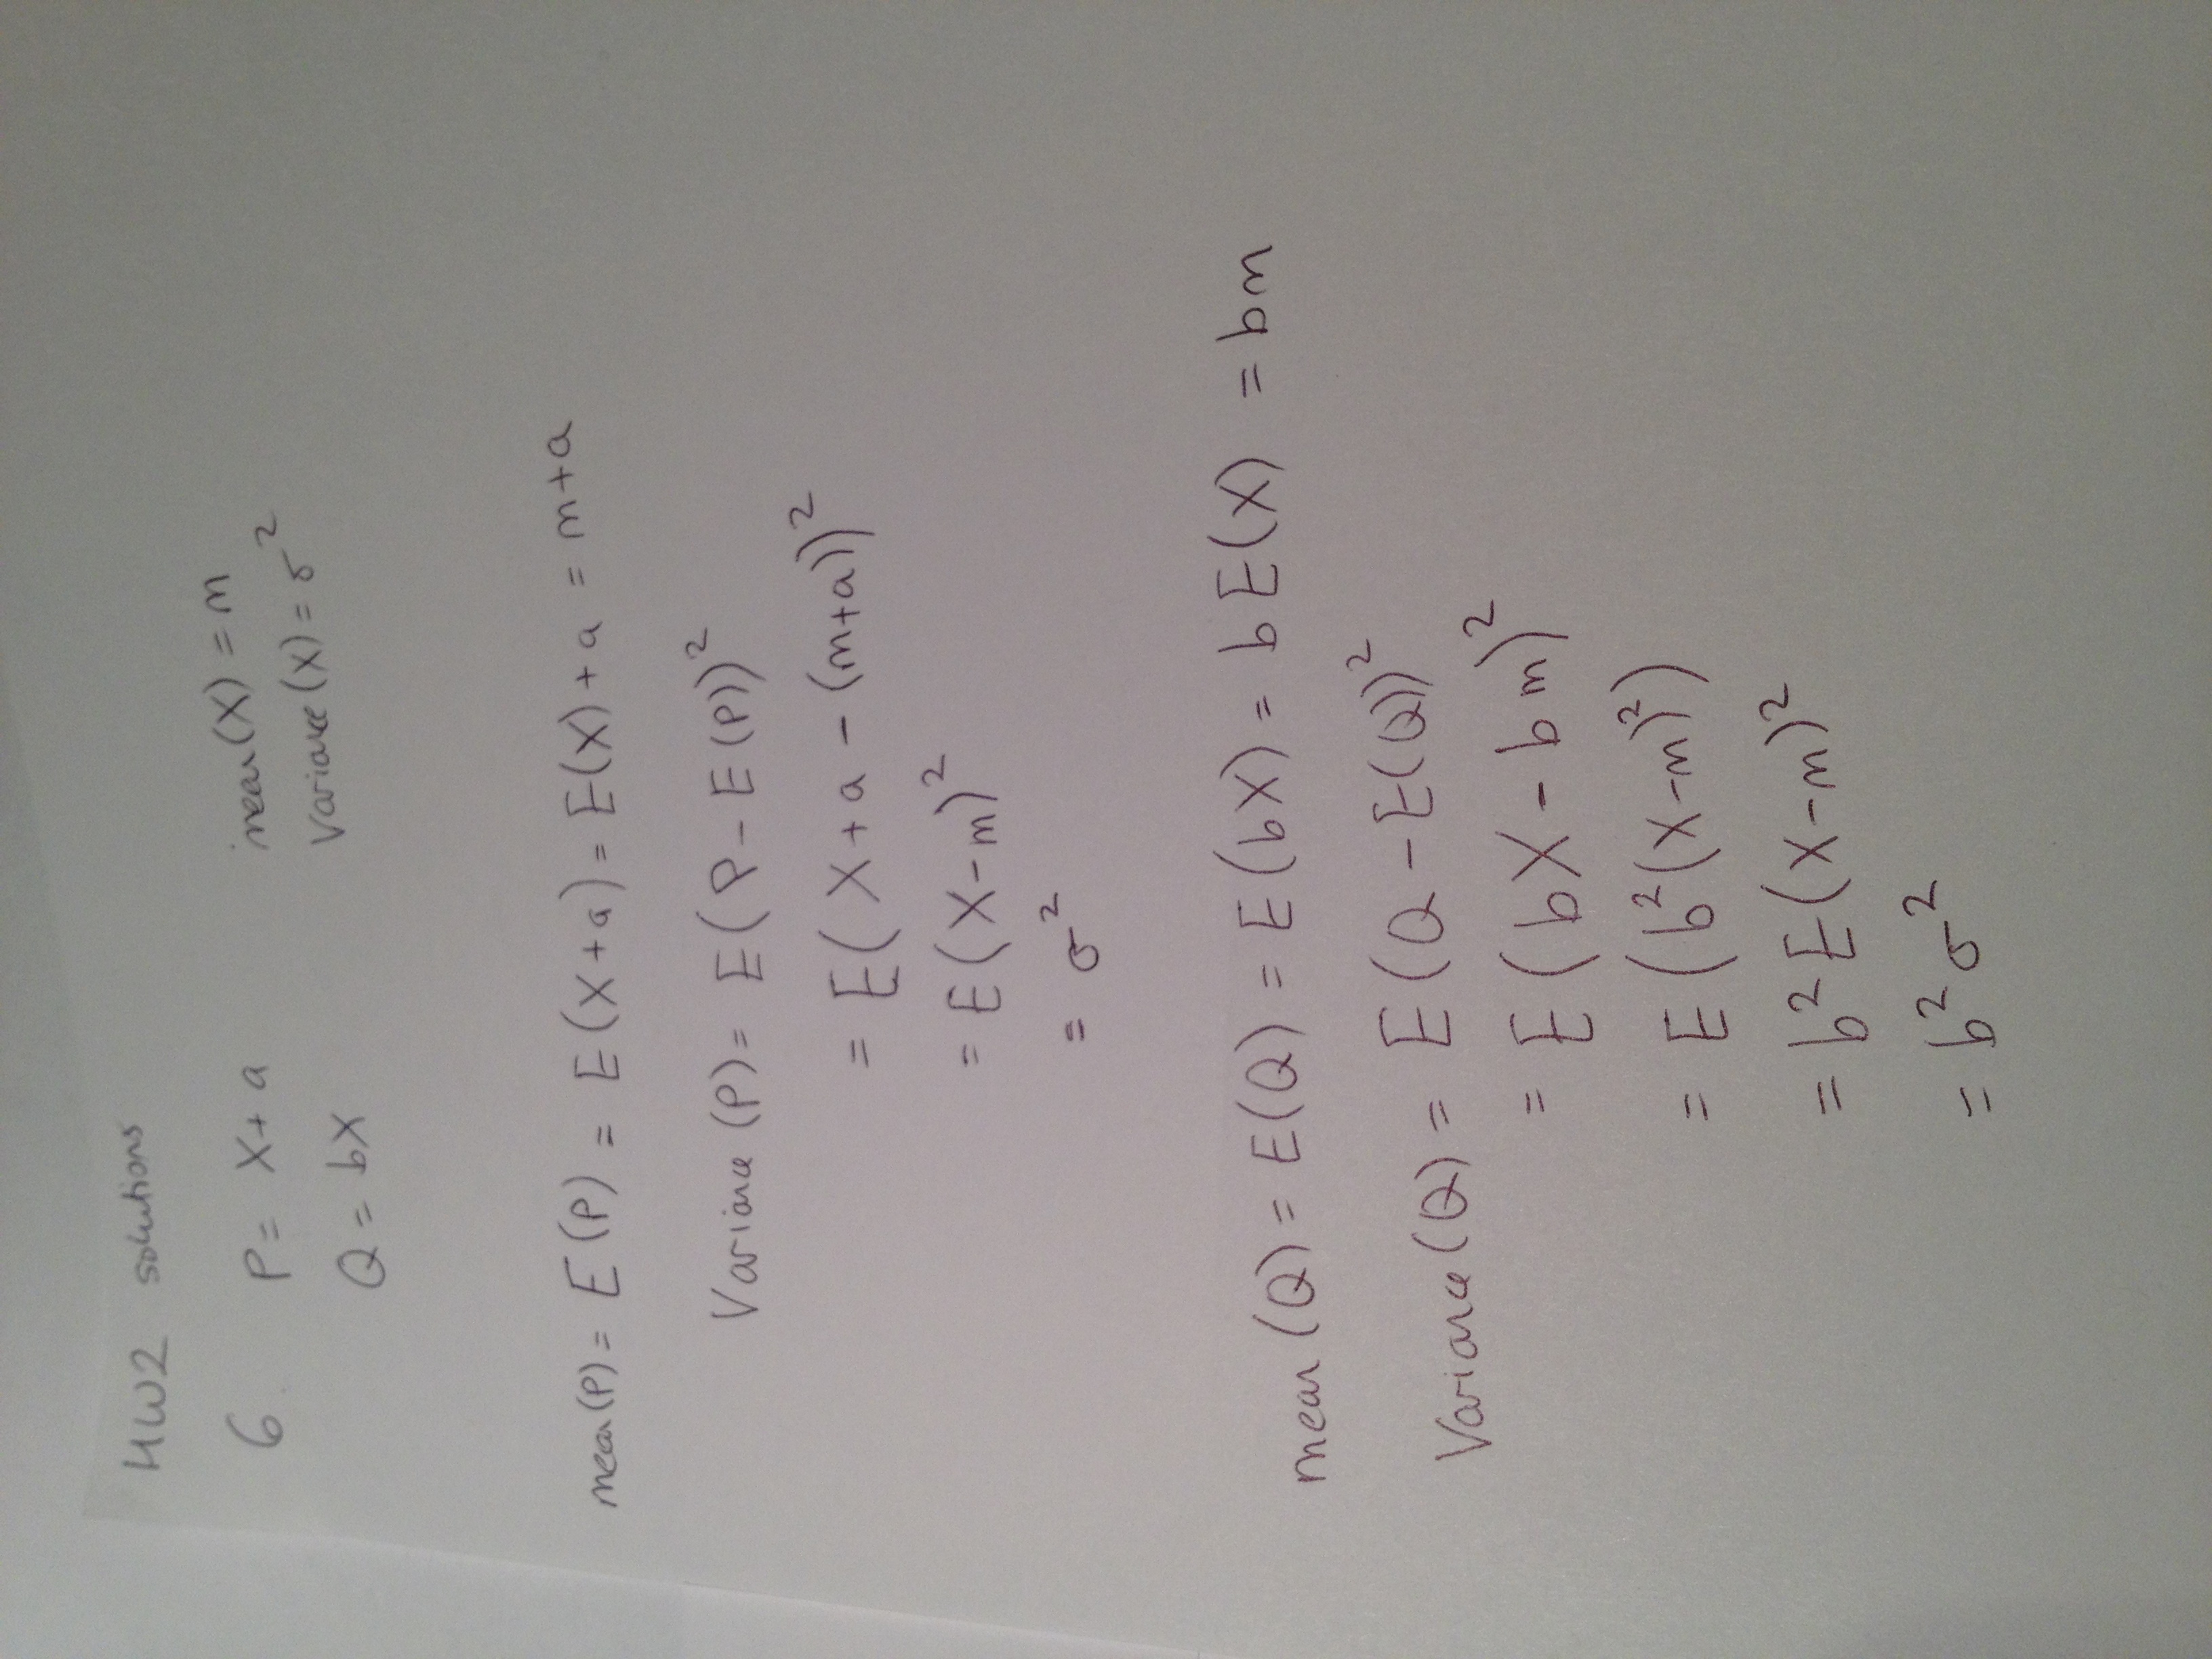 HW2 solutions
6. P = X + a mean(X) = m
Q = bX Variance(X) = σ²
mean(P) = E(P) = E(X+a) = E(X) + a = m+a
Variance(P) = E(P - E(P))²
= E(X+a - (m+a))²
= E(X-m)²
= σ²
mean(Q) = E(Q) = E(bX) = bE(X) = bm
Variance(Q) = E(Q - E(Q))²
= E(bX - bm)²
= E(b²(X-m)²)
= b²E(X-m)²
= b²σ²